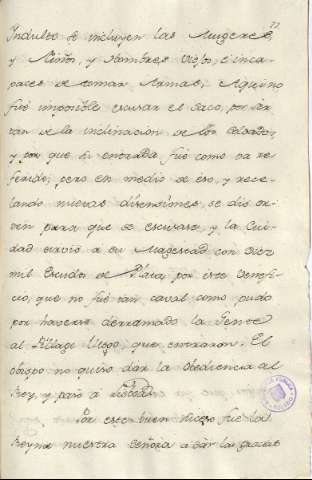 77
Indulto se incluyen las Mugeres,
y Niños, y Hombres viejos, e inca-
paces de tomar Armas; Aquino
fué imposible escusar el Saco, por
de la inclinacion de los Soldados,
y por que la entrada fué como va re-
ferido; pero en medio de eso, y rece-
lando nuevas disensiones, se dió or-
den para que se escusase, y la Ciu-
dad sirvió a su Magestad con Diez
mil Escudos de Plata, por este Benefi-
cio, que no fué tan caval como pudo
por haverse derramado la Gente
al Pillage luego, que entraron. El
obispo no quiso dar la obediencia al
Rey, y pasó a
Por este buen suceso fué la
Reyna nuestra Señora a dar las gracias